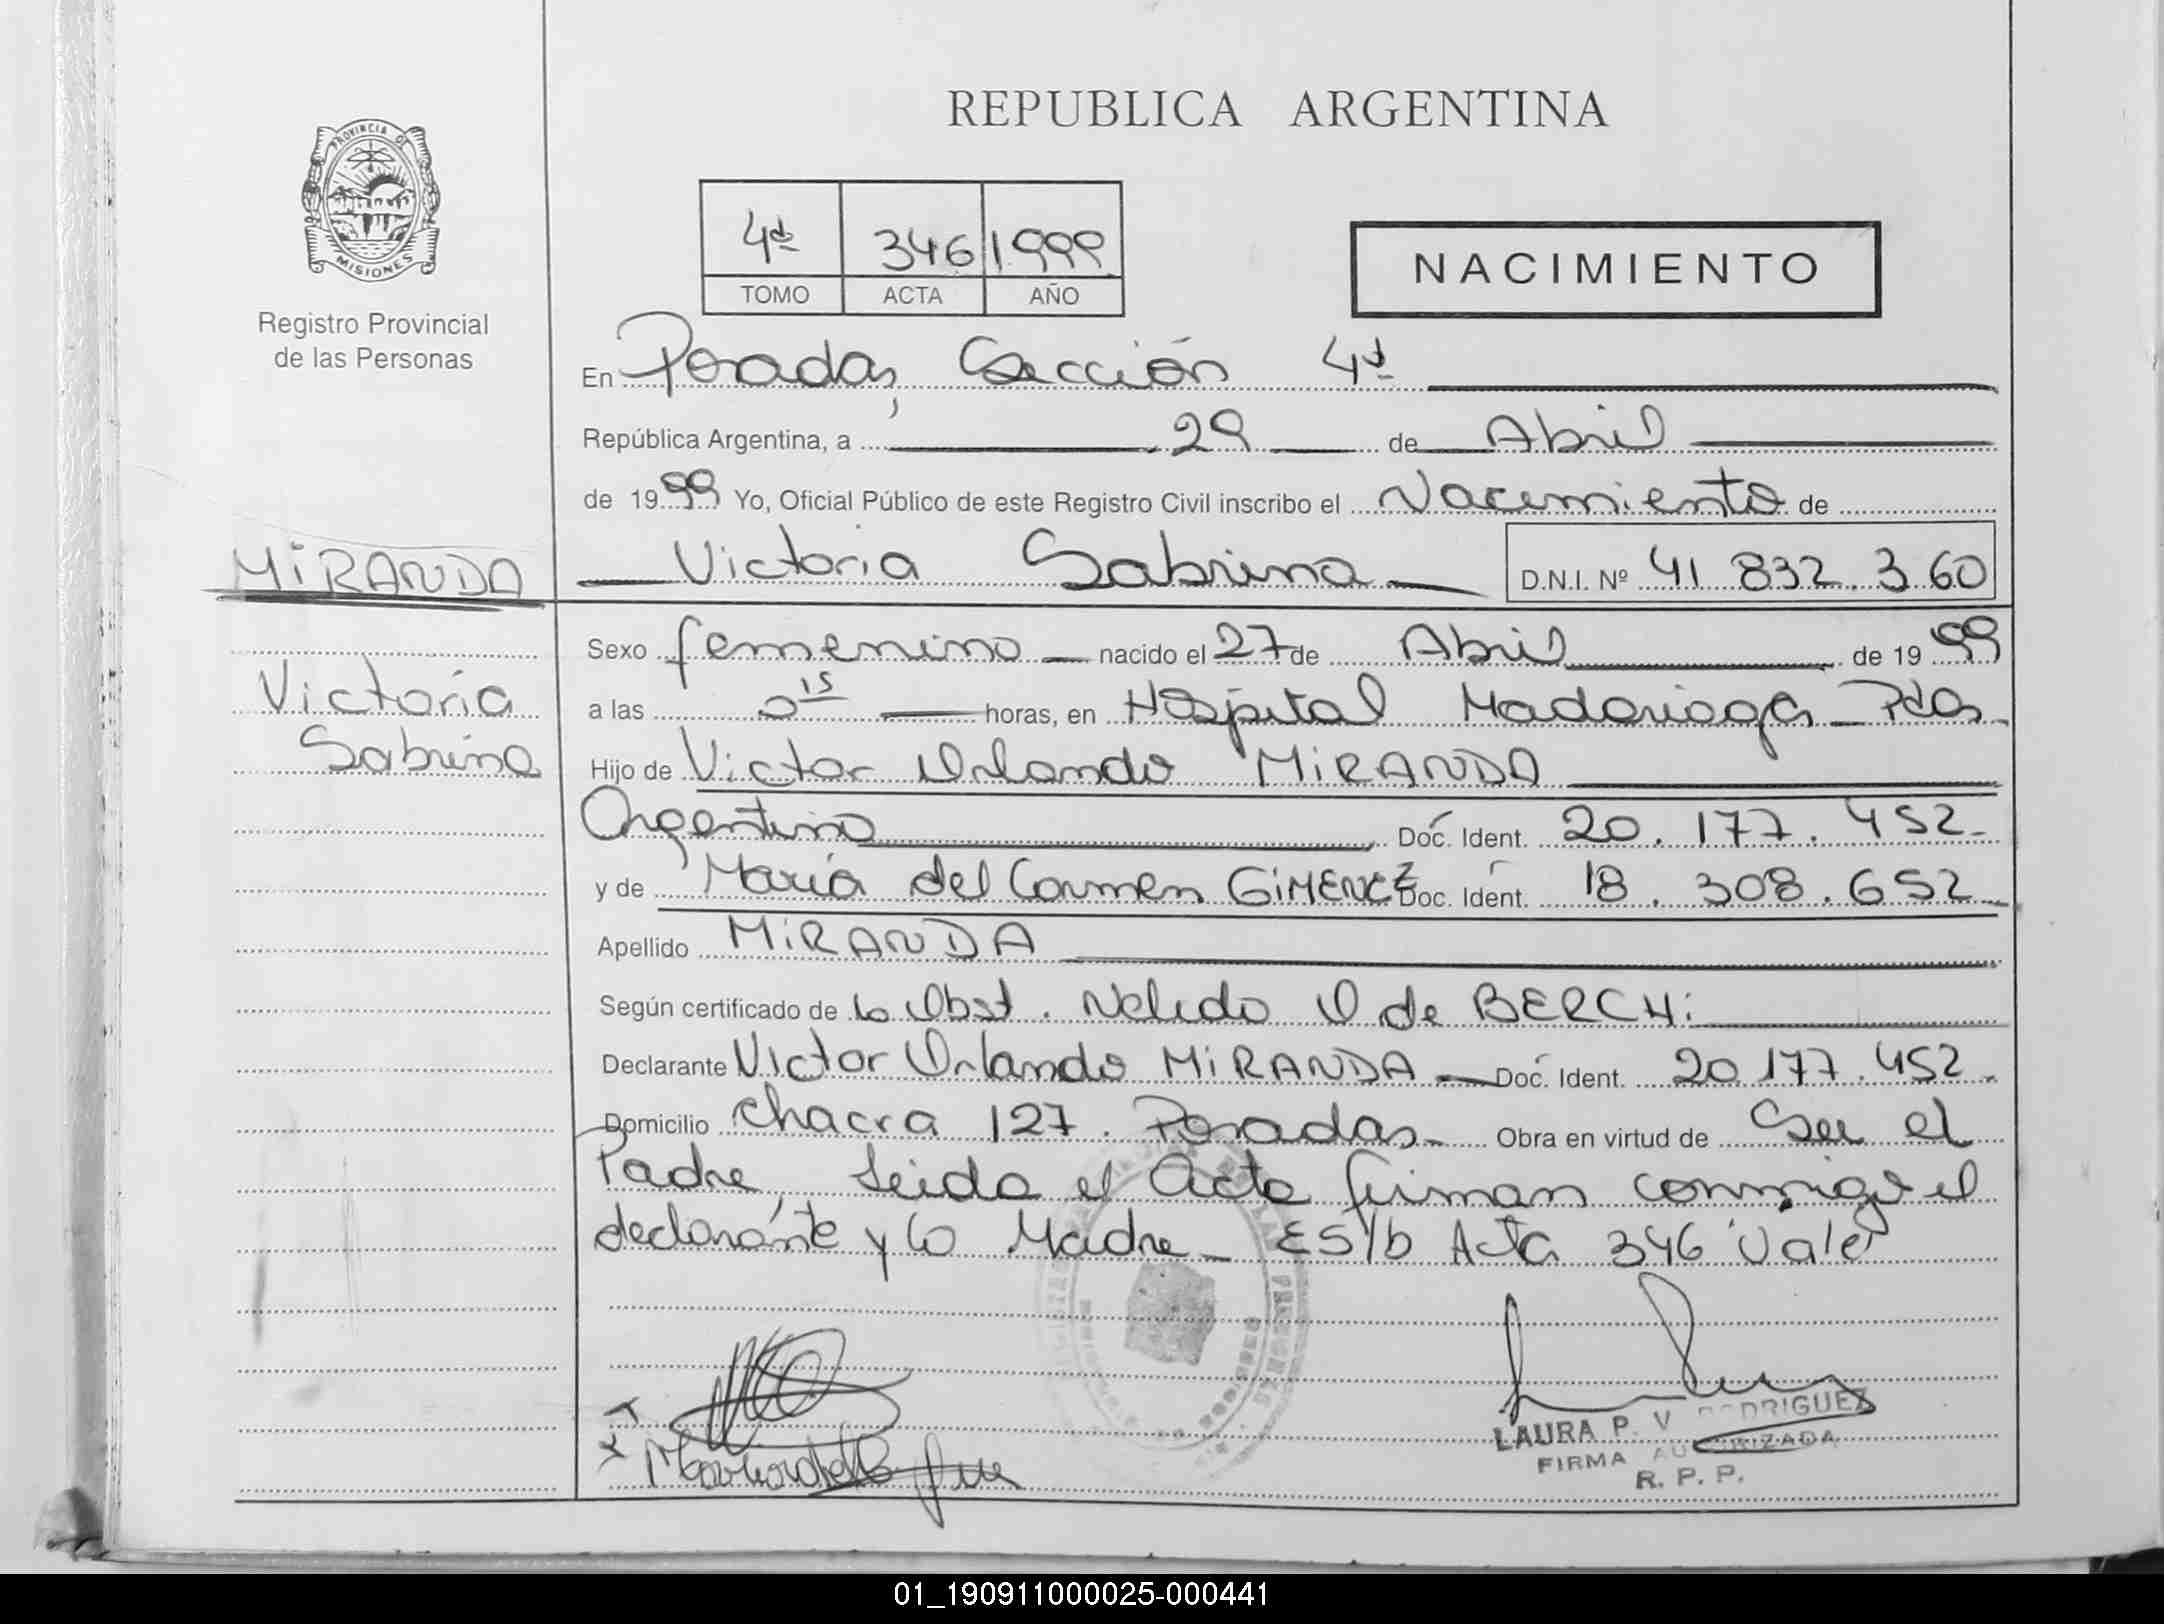 REPUBLICA ARGENTINA
PROVINCIA DE
MISIONES
Registro Provincial
de las Personas
4ta 346 1999
TOMO ACTA AÑO
NACIMIENTO
En Posadas, Sección 4ta
República Argentina, a 29 de Abril
de 1999 Yo, Oficial Público de este Registro Civil inscribo el Nacimiento de
MIRANDA
Victoria Sabrina D.N.I. Nº 41 832.360
Sexo femenino nacido el 27 de Abril de 1999
Victoria
Sabrina
a las 0 15 horas, en Hospital Madariaga - Pdas.
Hijo de Victor Orlando MIRANDA
Argentino Doc. Ident. 20.177.452-
y de María del Carmen GIMENEZ Doc. Ident. 18.308.652-
Apellido MIRANDA
Según certificado de la Obst. Nelida O de BERCHI
Declarante Victor Orlando MIRANDA Doc. Ident. 20.177.452-
Domicilio Chacra 127. Posadas- Obra en virtud de Ser el
Padre, Leida el Acta firman conmigo el
declarante y la Madre_ ES/b Acta 346 Vale
LAURA P. V. RODRIGUEZ
FIRMA AUTORIZADA
R. P. P.
01_190911000025-000441